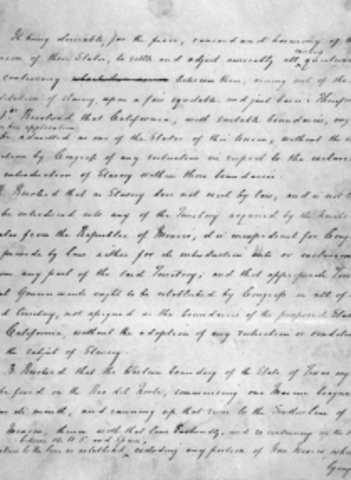 It being desirable, for the peace, concord and harmony of
union of these States, to settle and adjust amicably all existing questions
controversy between them, arising out of the
institution of slavery, upon a fair equitable and just basis: Therefore
1. Resolved that California, with suitable boundaries,
upon her application
be admitted as one of the States of this Union, without the
by Congress of any restriction in respect to the exclusion
introduction of Slavery within those boundaries.
2. Resolved that as Slavery does not exist by law, and is not
be introduced into any of the Territory acquired by the United
States from the Republic of Mexico, it is inexpedient for Congress
provide by law either for its introduction into or exclusion
from any part of the said Territory; and that appropriate Territorial
Governments ought to be established by Congress in all of
said Territory, not assigned as the boundaries of the proposed State
California, without the adoption of any restriction or condition
the subject of Slavery.
3. Resolved that the Western boundary of the State of Texas
be fixed on the Rio del Norte, commencing one Marine league
its mouth, and running up that river to the Southern line of
Mexico, thence with that line Eastwardly, and so continuing in the
between the U.S. and Spain,
to the line as established, excluding any portion of New Mexico,
lying